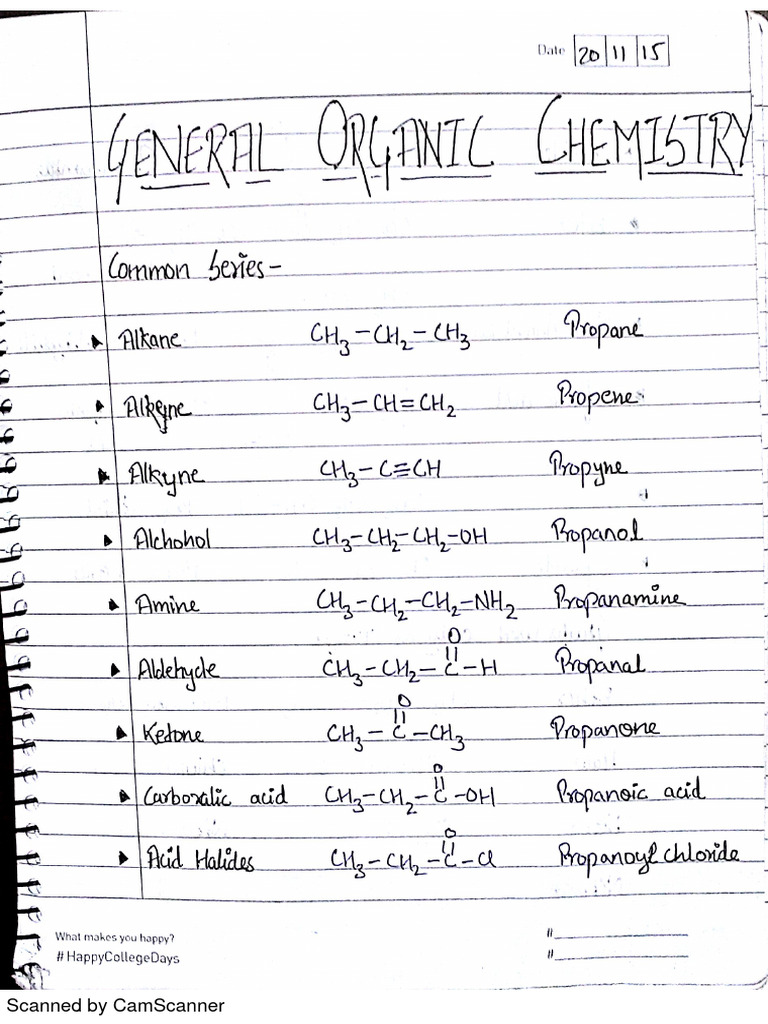 Date 20 11 15
GENERAL ORGANIC CHEMISTRY
Common Series-
Alkane CH₃-CH₂-CH₃ Propane
Alkene CH₃-CH=CH₂ Propene
Alkyne CH₃-C≡CH Propyne
Alchohol CH₃-CH₂-CH₂-OH Propanol
Amine CH₃-CH₂-CH₂-NH₂ Propanamine
O
Aldehyde CH₃-CH₂-C-H Propanal
O
Ketone CH₃-C-CH₃ Propanone
O
Carboxalic acid CH₃-CH₂-C-OH Propanoic acid
O
Acid Halides CH₃-CH₂-C-Cl Propanoyl chloride
What makes you happy? #
#HappyCollegeDays #
Scanned by CamScanner